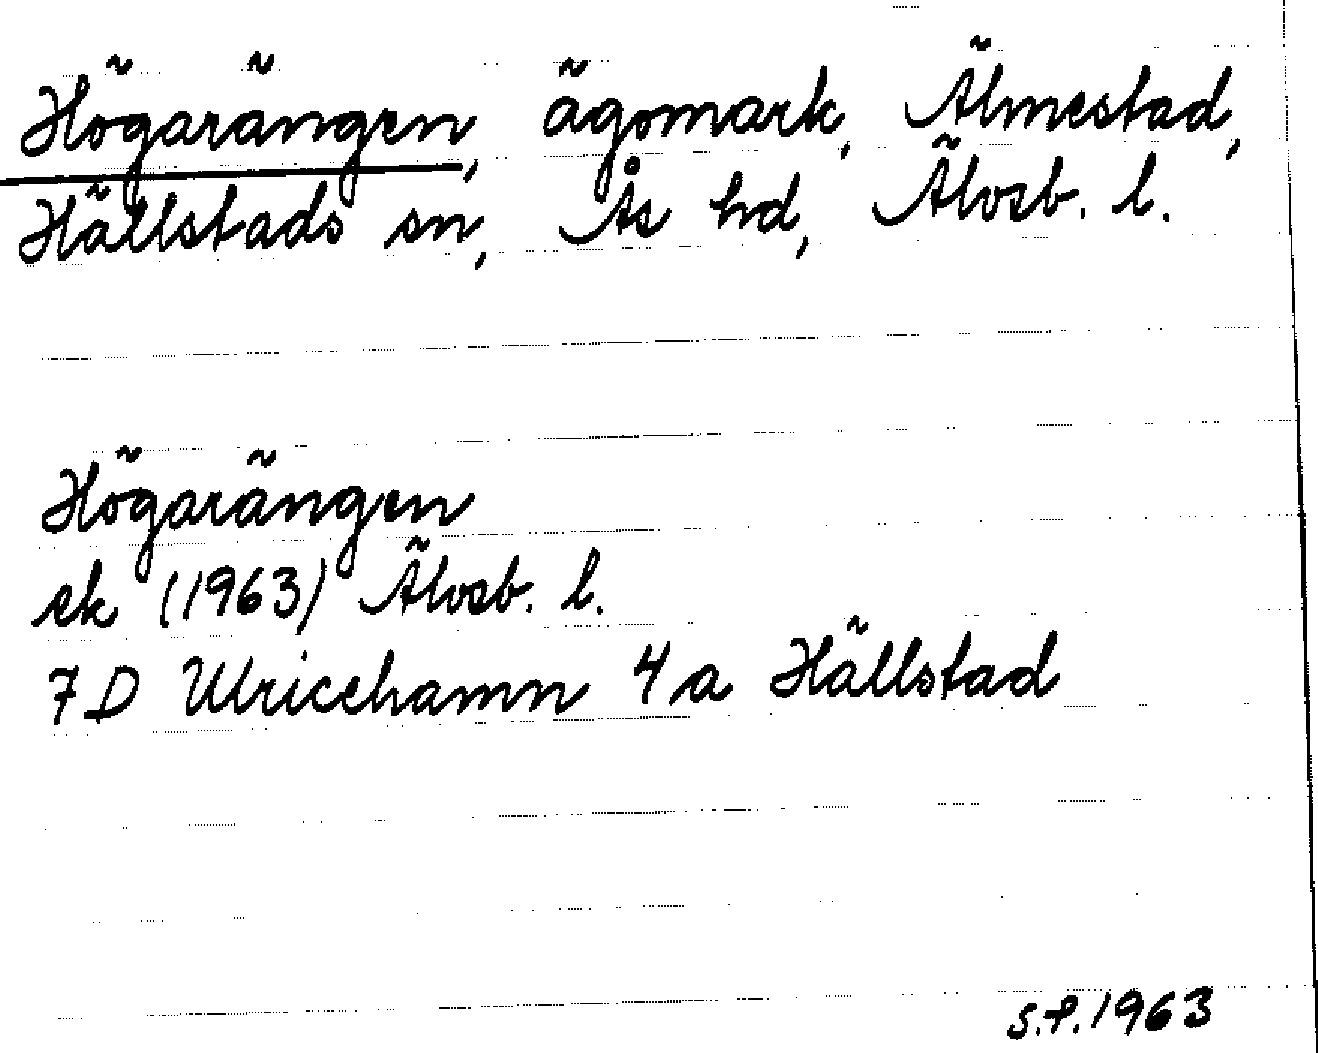 Högarängen, ägomark, Älmestad,
Hällstads sn, Ås hd, Älvsb. l.
Högarängen
ek (1963) Älvsb. l.
7D Ulricehamn 4a Hällstad
S.P. 1963